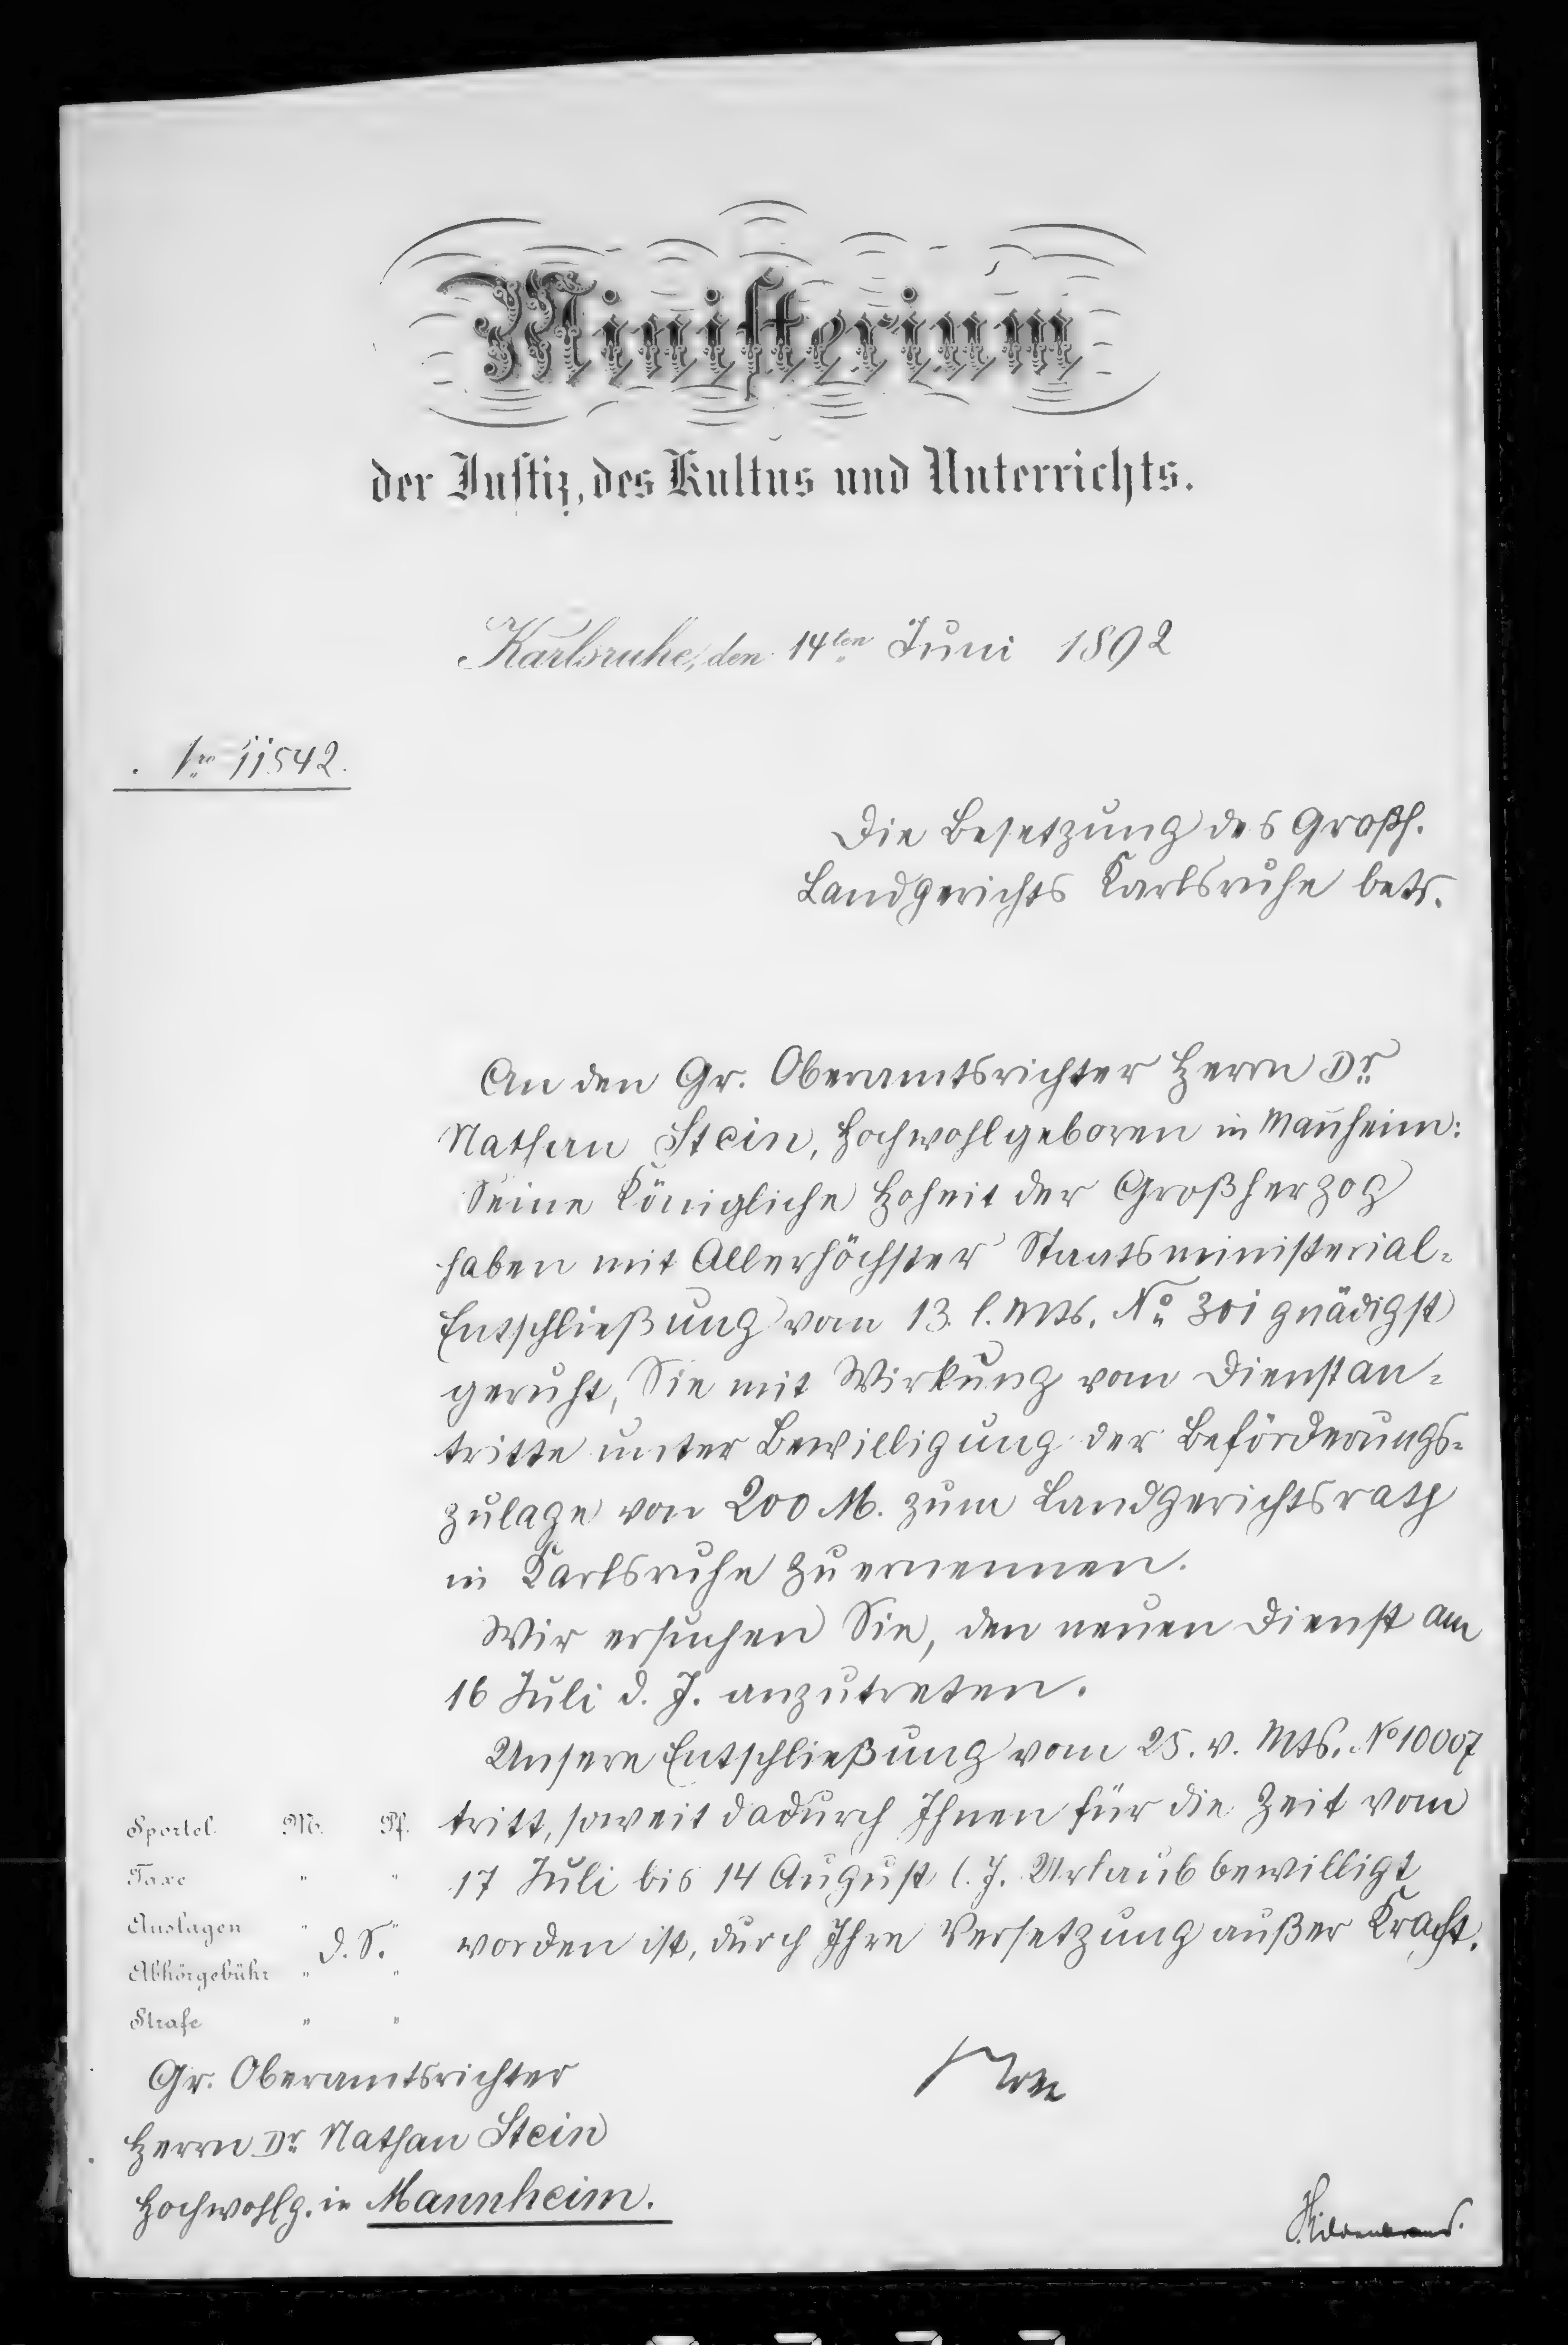 Ministerium
der Justiz, des Kultus und Unterrichts.
Karlsruhe, den 14ten Juni 1892
No 11542.
Die Besetzung des Großh.
Landgerichts Karlsruhe betr.
An den Gr. Oberamtsrichter Herrn Dr.
Nathan Stein, Hochwohlgeboren in Mañheim:
Seine Königliche Hoheit der Großherzog
haben mit Allerhöchster Staatsministerial-
Entschließung vom 13. l. Mts. No 301 gnädigst
geruht, Sie mit Wirkung vom Dienstan-
tritte unter Bewilligung der Beförderungs-
zulage von 200 M. zum Landgerichtsrath
in Karlsruhe zu ernennen.
Wir ersuchen Sie, den neuen Dienst am
16 Juli d. J. anzutreten.
Unsere Entschließung vom 25. v. Mts. No 10007
tritt, soweit dadurch Ihnen für die Zeit vom
17 Juli bis 14 August l. J. Urlaub bewilligt
worden ist, durch Ihre Versetzung außer Kraft.
Sportel M. Pf.
Taxe " "
Auslagen " "
d. S.
Abhörgebühr " "
Strafe " "
Gr. Oberamtsrichter
Herrn Dr. Nathan Stein
Hochwohlg. in Mannheim.
Hildenbrand.